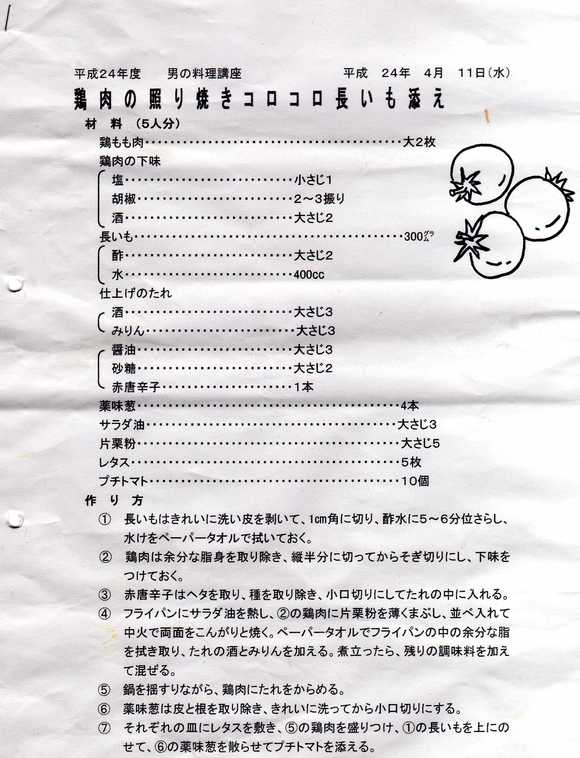 平成24年度　　男の料理講座　　　　　　　平成　24年　4月　11日(水)
鶏肉の照り焼きコロコロ長いも添え
材　料　(5人分)
鶏もも肉‥‥‥‥‥‥‥‥‥‥‥‥‥‥‥‥‥大2枚
鶏肉の下味
塩‥‥‥‥‥‥‥‥‥‥‥小さじ1
胡椒‥‥‥‥‥‥‥‥‥‥2～3振り
酒‥‥‥‥‥‥‥‥‥‥‥大さじ2
長いも‥‥‥‥‥‥‥‥‥‥‥‥‥‥‥‥‥‥300㌘
酢‥‥‥‥‥‥‥‥‥‥‥大さじ2
水‥‥‥‥‥‥‥‥‥‥‥400cc
仕上げのたれ
酒‥‥‥‥‥‥‥‥‥‥‥大さじ3
みりん‥‥‥‥‥‥‥‥‥大さじ3
醤油‥‥‥‥‥‥‥‥‥‥大さじ3
砂糖‥‥‥‥‥‥‥‥‥‥大さじ2
赤唐辛子‥‥‥‥‥‥‥‥1本
薬味葱‥‥‥‥‥‥‥‥‥‥‥‥‥‥‥‥‥‥4本
サラダ油‥‥‥‥‥‥‥‥‥‥‥‥‥‥‥‥‥大さじ3
片栗粉‥‥‥‥‥‥‥‥‥‥‥‥‥‥‥‥‥‥大さじ5
レタス‥‥‥‥‥‥‥‥‥‥‥‥‥‥‥‥‥‥5枚
プチトマト‥‥‥‥‥‥‥‥‥‥‥‥‥‥‥‥10個
作　り　方
①　長いもはきれいに洗い皮を剥いて、1cm角に切り、酢水に5～6分位さらし、
水けをペーパータオルで拭いておく。
②　鶏肉は余分な脂身を取り除き、縦半分に切ってからそぎ切りにし、下味を
つけておく。
③　赤唐辛子はヘタを取り、種を取り除き、小口切りにしてたれの中に入れる。
④　フライパンにサラダ油を熱し、②の鶏肉に片栗粉を薄くまぶし、並べ入れて
中火で両面をこんがりと焼く。ペーパータオルでフライパンの中の余分な脂
を拭き取り、たれの酒とみりんを加える。煮立ったら、残りの調味料を加え
て混ぜる。
⑤　鍋を揺すりながら、鶏肉にたれをからめる。
⑥　薬味葱は皮と根を取り除き、きれいに洗ってから小口切りにする。
⑦　それぞれの皿にレタスを敷き、⑤の鶏肉を盛りつけ、①の長いもを上にの
せて、⑥の薬味葱を散らせてプチトマトを添える。